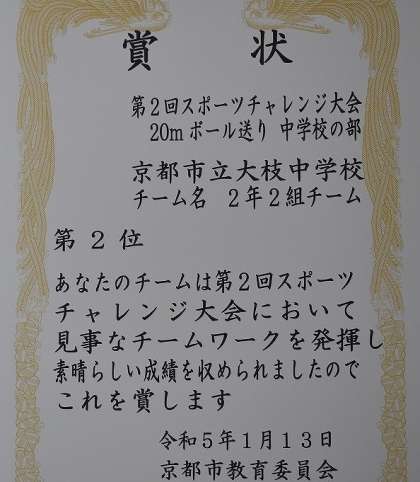 賞状
第2回スポーツチャレンジ大会
20mボール送り 中学校の部
京都市立大枝中学校
チーム名 2年2組チーム
第2位
あなたのチームは第2回スポーツ
チャレンジ大会において
見事なチームワークを発揮し
素晴らしい成績を収められましたので
これを賞します
令和5年1月13日
京都市教育委員会